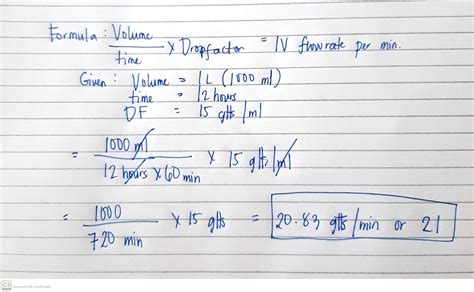 Formula : Volume / time x Dropfactor = IV flowrate per min.
Given : Volume = 1L (1000 ml)
time = 12 hours
DF = 15 gtts/ml
= 1000 ml / 12 hours x 60 min x 15 gtts/ml
= 1000 / 720 min x 15 gtts = 20.83 gtts/min or 21
CS Scanned with CamScanner